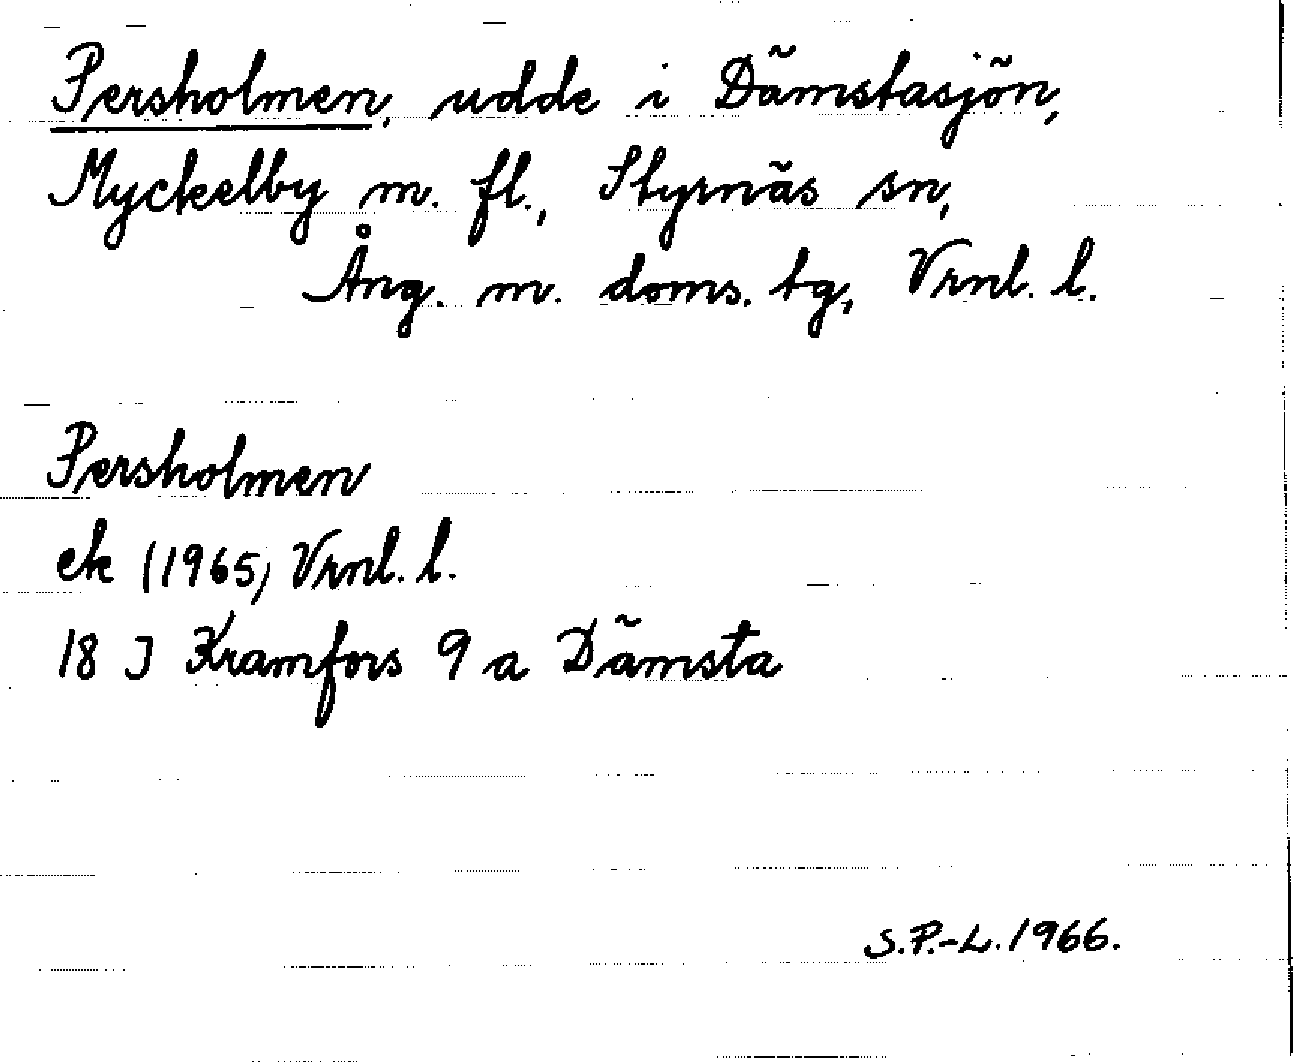 Persholmen, udde i Dämstasjön,
Myckelby m. fl., Styrnäs sn,
Ång. m. doms. tg, Vrnl. l.
Persholmen
ek (1965) Vrnl. l.
18 J Kramfors 9 a Dämsta
S.P.-L. 1966.